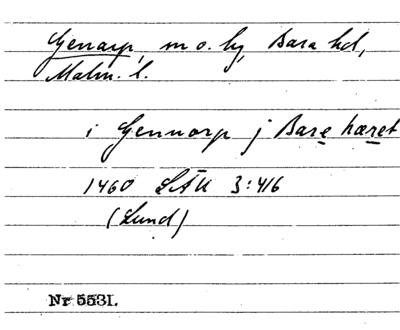 Genarp, sn o. by, Bara hd,
Malm. l.
i Gennorp j Bare hæret
1460 LÄU 3:416
(Lund)
Nr 5531.